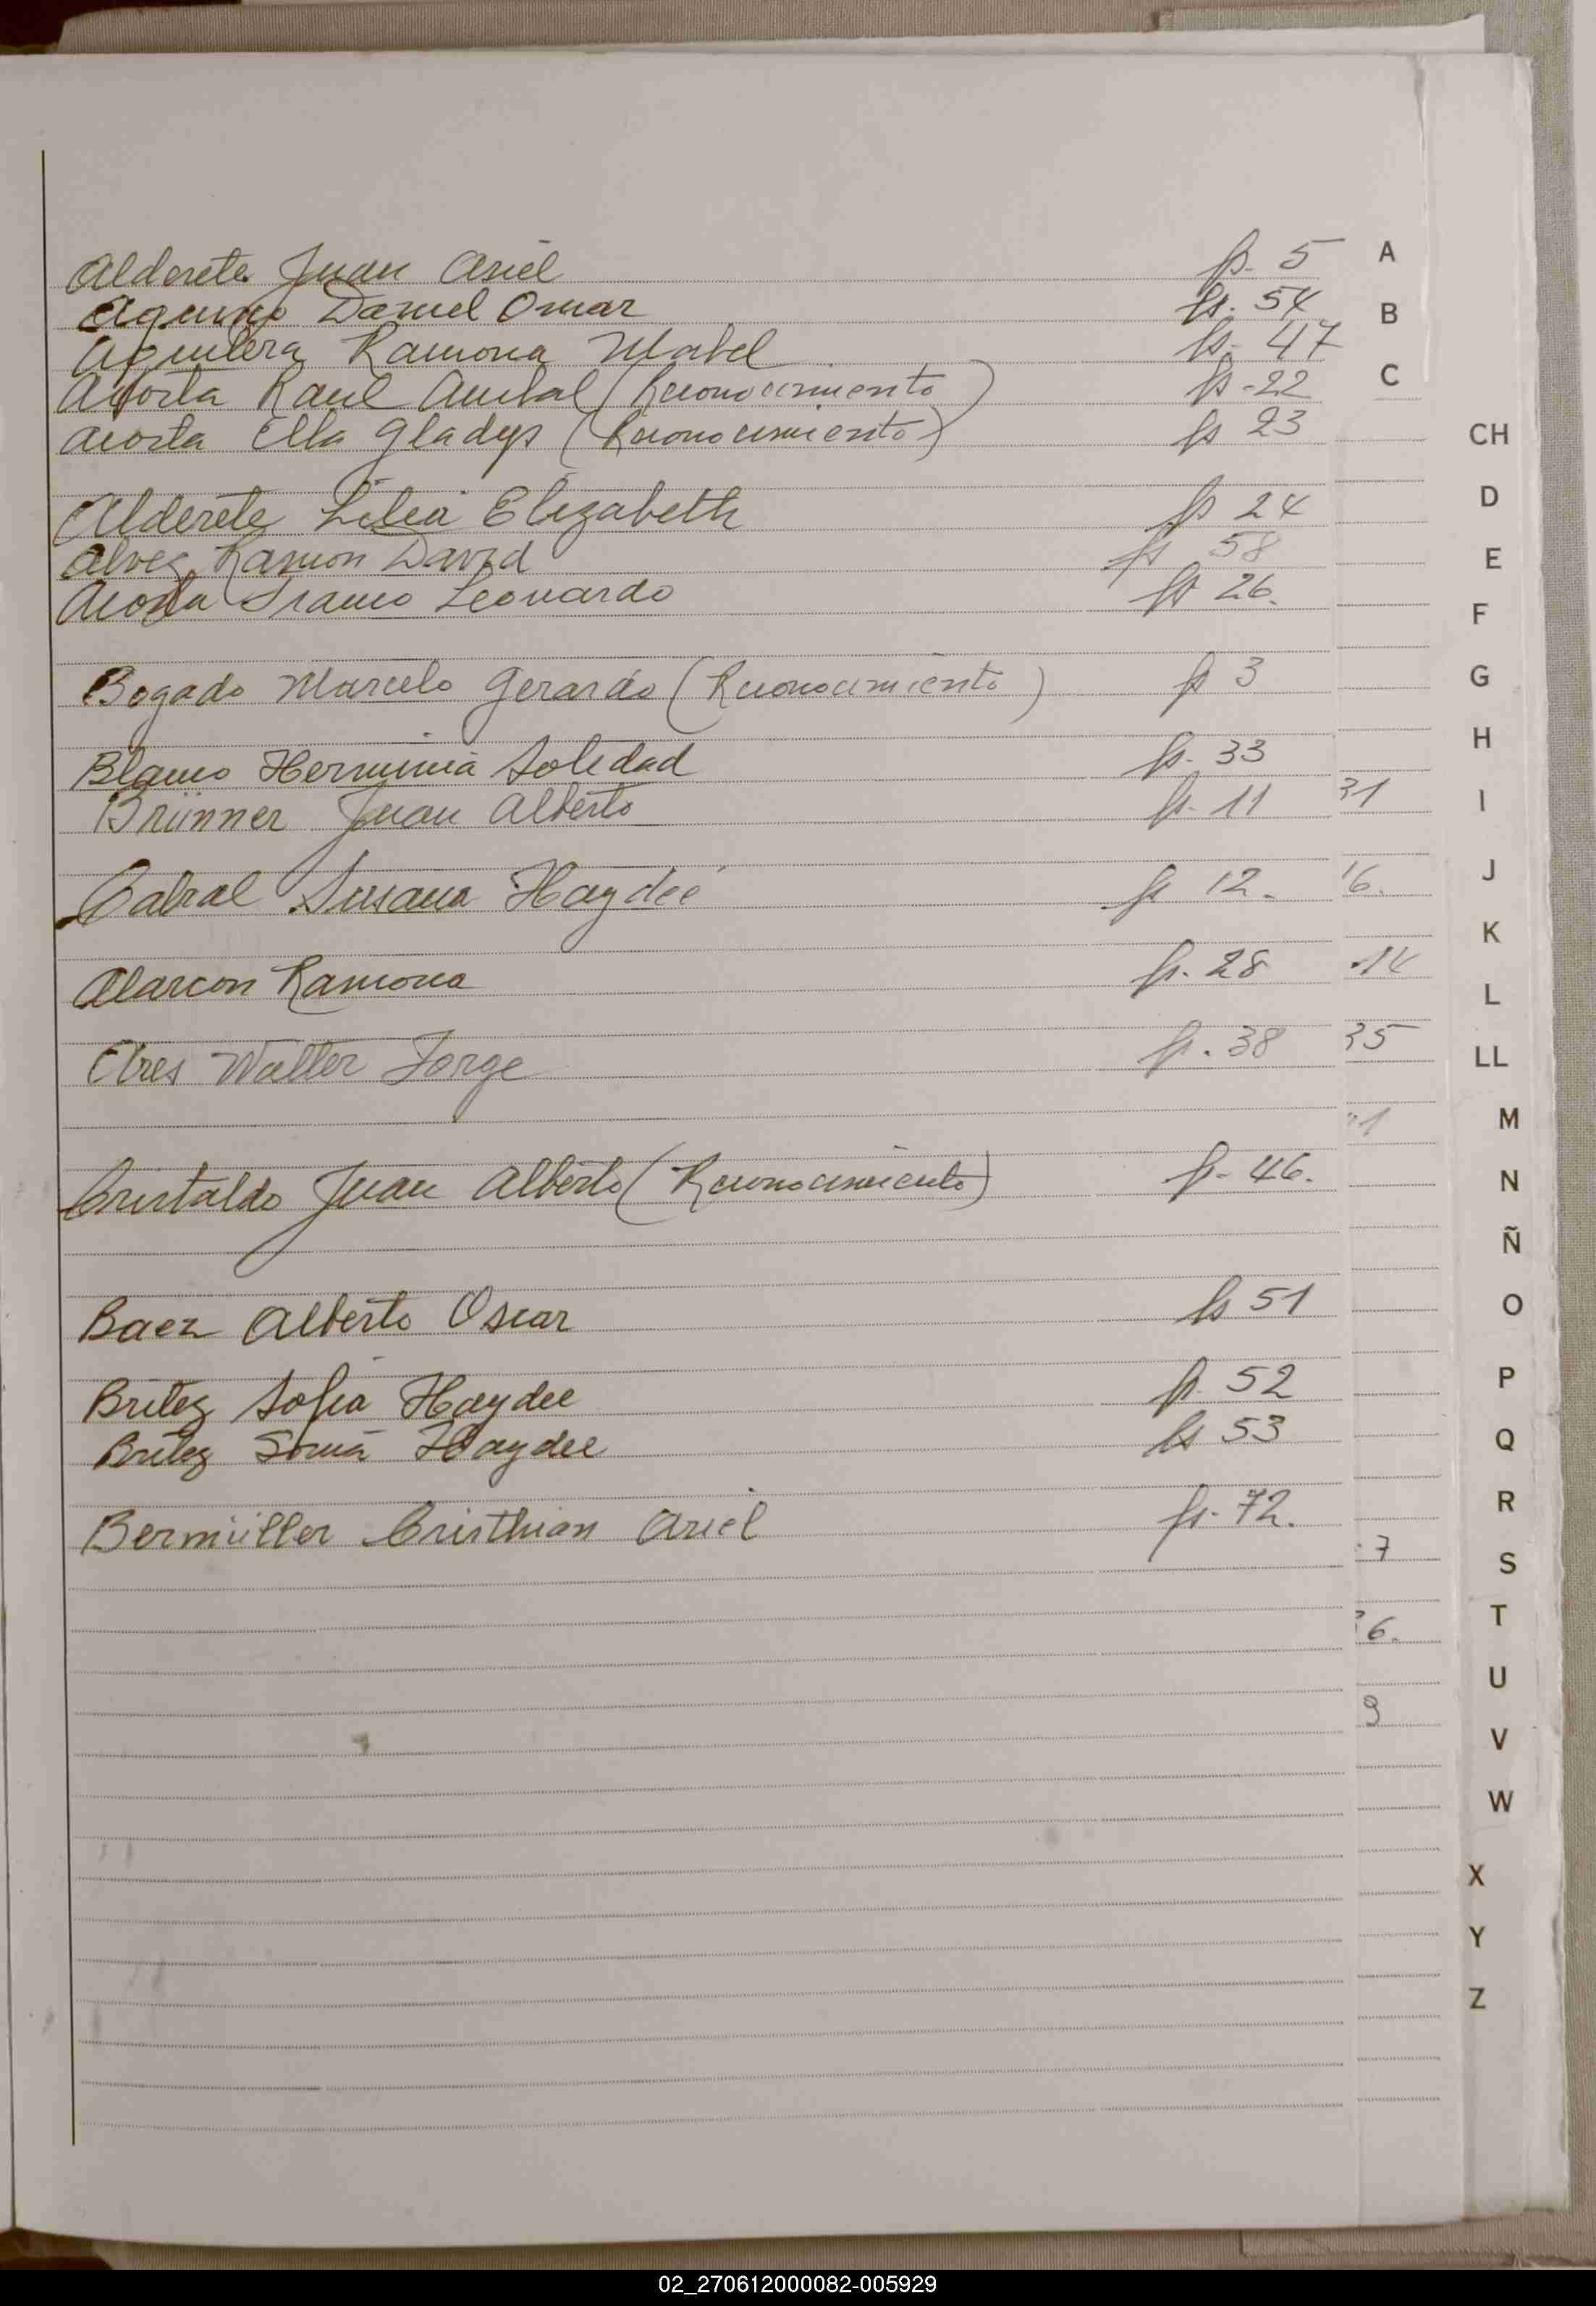 Alderete Juan Ariel fs. 5 A
Aquino Daniel Omar fs. 54 B
Aguilera Ramona Mabel fs. 47
Acosta Raul Anibal (Reconocimiento) fs. 22 C
Acosta Ella Gladys (Reconocimiento) fs 23 CH
Alderete Lilia Elizabeth fs 24 D
Alvez Ramon David fs 58 E
Acosta Franco Leonardo fs 26. F
Bogado Marcelo Gerardo (Reconocimiento) fs 3 G
Blanco Herminia Soledad fs. 33 H
Brünner Juan Alberto fs. 11 31 I
Cabral Susana Haydeé fs 12. 16. J
K
Alarcon Ramona fs. 28 14 L
Walter Jorge fs. 38 35 LL
M
Cristaldo Juan Alberto (Reconocimiento) fs. 46. N
Ñ
Baez Alberto Oscar fs 51 O
Britez Sofia Haydee fs. 52 P
Britez Sonia Haydee fs 53 Q
Bermüller Cristhian Ariel fs. 72. R
7 S
T
6.
U
9
V
W
X
Y
Z
02_270612000082-005929